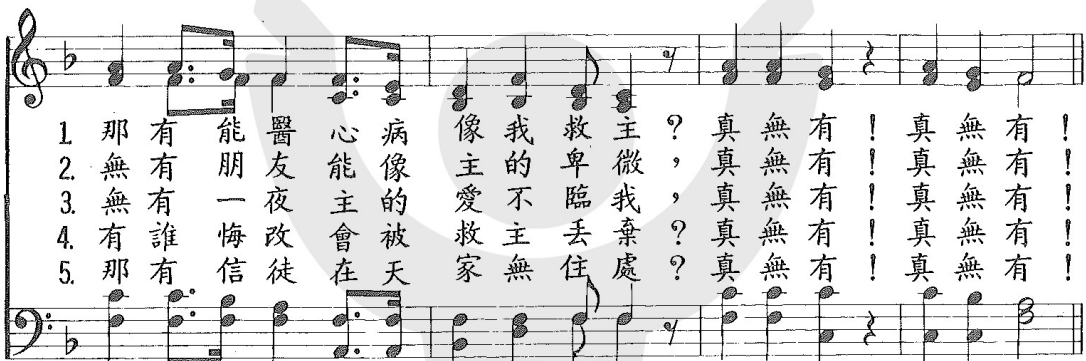 1. 那有能醫心病像我救主？真無有！真無有！
2. 無有朋友能像主的卑微，真無有！真無有！
3. 無有一夜主的愛不臨我，真無有！真無有！
4. 有誰悔改會被救主丟棄？真無有！真無有！
5. 那有信徒在天家無住處？真無有！真無有！